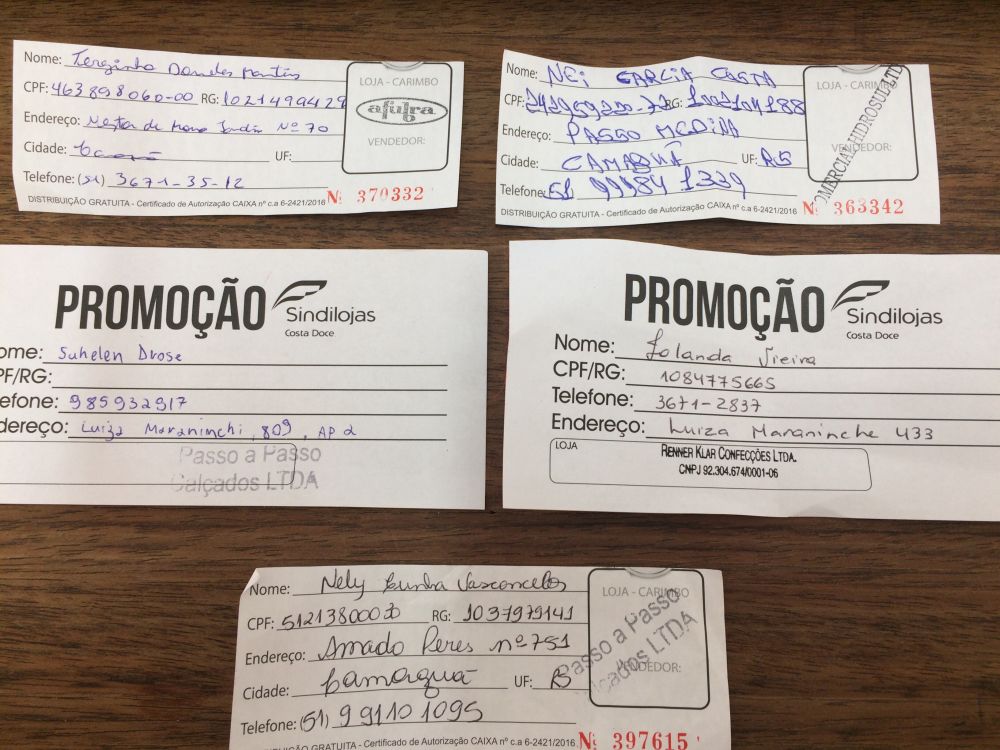 Nome: Terezinha Dorneles Martins
CPF: 463898060-00 RG: 1021499429
Endereço: Jardim Nº 70
Cidade: UF:
Telefone: (51) 3671-35-12
LOJA - CARIMBO
afubra
VENDEDOR:
DISTRIBUIÇÃO GRATUITA - Certificado de Autorização CAIXA nº c.a 6-2421/2016 Nº 370332
Nome: NEi GARCIA COSTA
CPF: RG:
Endereço: PASSO MEDINA
Cidade: CAMAQUÃ UF: RS
Telefone: 51 99984 1339
LOJA - CARIMBO
VENDEDOR:
OMERCIAL HIDROSUL LTD
DISTRIBUIÇÃO GRATUITA - Certificado de Autorização CAIXA nº c.a 6-2421/2016 Nº 363342
PROMOÇÃO Sindilojas
Costa Doce
ome: Suhelen Drose
PF/RG:
efone: 985932917
dereço: Luiza Maraninchi, 809, AP 2
Passo a Passo
Calçados LTDA
PROMOÇÃO Sindilojas
Costa Doce
Nome: Iolanda Vieira
CPF/RG: 1084775665
Telefone: 3671-2837
Endereço: Luiza Maraninche 433
LOJA
RENNER KLAR CONFECÇÕES LTDA.
CNPJ 92.304.674/0001-06
Nome: Nely Cunha Vasconcelos
CPF: RG: 1037979141
Endereço: Amado Peres nº 751
Cidade: Camaquã UF: RS
Telefone: (51) 9 9110 1095
LOJA - CARIMBO
Passo a Passo
lçados LTDA
VENDEDOR:
UIÇÃO GRATUITA - Certificado de Autorização CAIXA nº c.a 6-2421/2016 Nº 397615